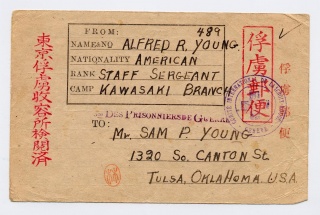 東京俘虜収容所検閲済
FROM:
489
NAME & NO ALFRED R. YOUNG
NATIONALITY AMERICAN
RANK STAFF SERGEANT
CAMP KAWASAKI BRANCH
俘虜郵便
俘虜郵便
DES PRISONNIERS DE GUERRE
TO:
Mr. SAM P. YOUNG
1320 So. CANTON St.
TULSA, OKLAHOMA. U.S.A.